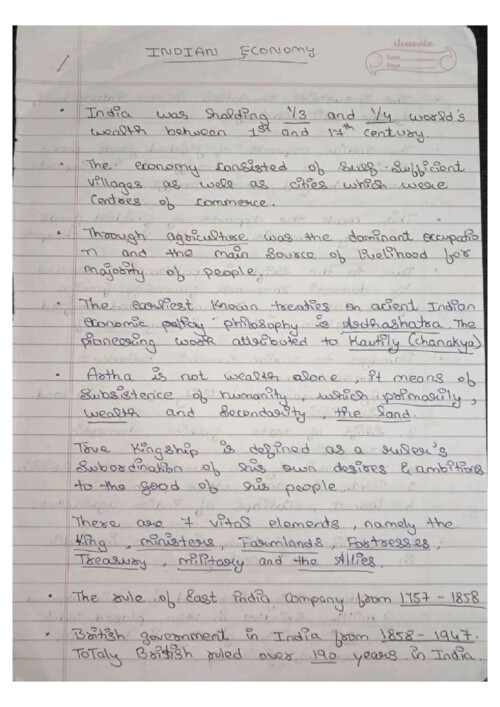 INDIAN ECONOMY
classmate
Date
Page
India was holding 1/3 and 1/4 world's
wealth between 1st and 17th century.
The economy consisted of self-sufficient
villages as well as cities which were
centres of commerce.
Through agriculture was the dominant occupatio
n and the main source of livelihood for
majority of people.
The earliest known treaties on acient Indian
economic policy philosophy is Ardhashatra. The
pioneering work attributed to Kautily (chanakya)
Artha is not wealth alone, it means of
subsistence of humanity, which primarily,
wealth and secondarity, the land.
True Kingship is defined as a ruler's
subordination of his own desires & ambitions
to the good of his people.
There are 7 vital elements, namely the
King, ministers, Farmlands, Fortresses,
Treasury, military and the Allies.
The rule of East India Company from 1757 - 1858
British government in India from 1858 - 1947.
Totaly British ruled over 190 years in India.